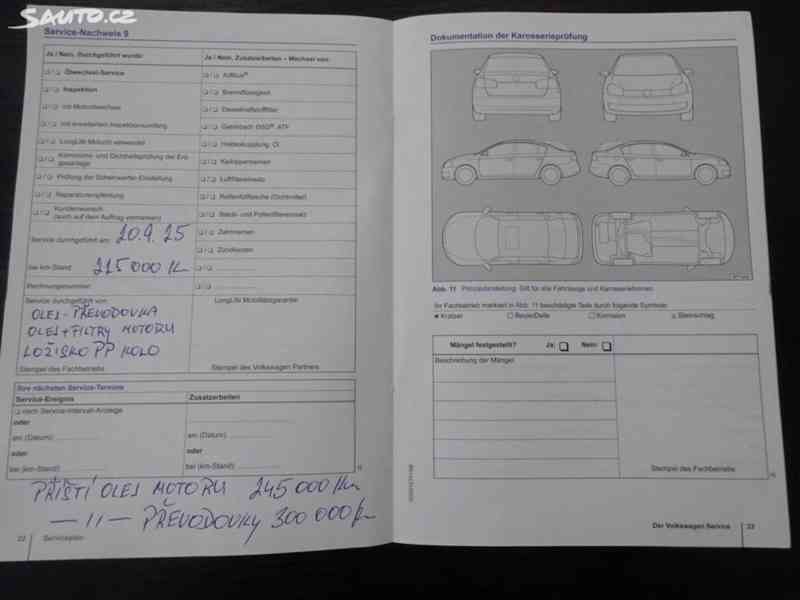 SAUTO.CZ
Service-Nachweis 9
Ja / Nein, Durchgeführt wurde:
Ja / Nein, Zusatzarbeiten – Wechsel von:
❑/❑ Ölwechsel-Service
❑/❑ Inspektion
❑/❑ mit Motorölwechsel
❑/❑ mit erweitertem Inspektionsumfang
❑/❑ LongLife Motoröl verwendet
❑/❑ Korrosions- und Dichtheitsprüfung der Erdgasanlage
❑/❑ Prüfung der Scheinwerfer-Einstellung
❑/❑ Reparaturempfehlung
❑/❑ Kundenwunsch
(auch auf dem Auftrag vermerken)
❑/❑ AdBlue®
❑/❑ Bremsflüssigkeit
❑/❑ Dieselkraftstofffilter
❑/❑ Getriebeöl: DSG®, ATF
❑/❑ Haldexkupplung: Öl
❑/❑ Keilrippenriemen
❑/❑ Luftfiltereinsatz
❑/❑ Reifenfüllflasche (Dichtmittel)
❑/❑ Staub- und Pollenfiltereinsatz
❑/❑ Zahnriemen
❑/❑ Zündkerzen
Service durchgeführt am: 20.9.25
bei km-Stand: 215 000 Km
Rechnungsnummer:
Service durchgeführt von:
OLEJ - PŘEVODOVKA
OLEJ + FILTRY MOTORU
LOŽISKO PP KOLO
Stempel des Fachbetriebs
LongLife Mobilitätsgarantie
Stempel des Volkswagen Partners
Ihre nächsten Service-Termine
Service-Ereignis
Zusatzarbeiten
❑ nach Service-Intervall-Anzeige
oder
am (Datum)
oder
bei (km-Stand)
am (Datum)
oder
bei (km-Stand)
PŘÍŠTÍ OLEJ MOTORU 245 000 Km
— 11 — PŘEVODOVKY 300 000 Km
22 Serviceplan
Dokumentation der Karosserieprüfung
Abb. 11 Prinzipdarstellung: Gilt für alle Fahrzeuge und Karosserieformen.
Ihr Fachbetrieb markiert in Abb. 11 beschädigte Teile durch folgende Symbole:
Kratzer
Beule/Delle
Korrosion
Steinschlag
Mängel festgestellt? Ja: ❑ Nein: ❑
Beschreibung der Mängel:
Stempel des Fachbetriebs
Der Volkswagen Service 23